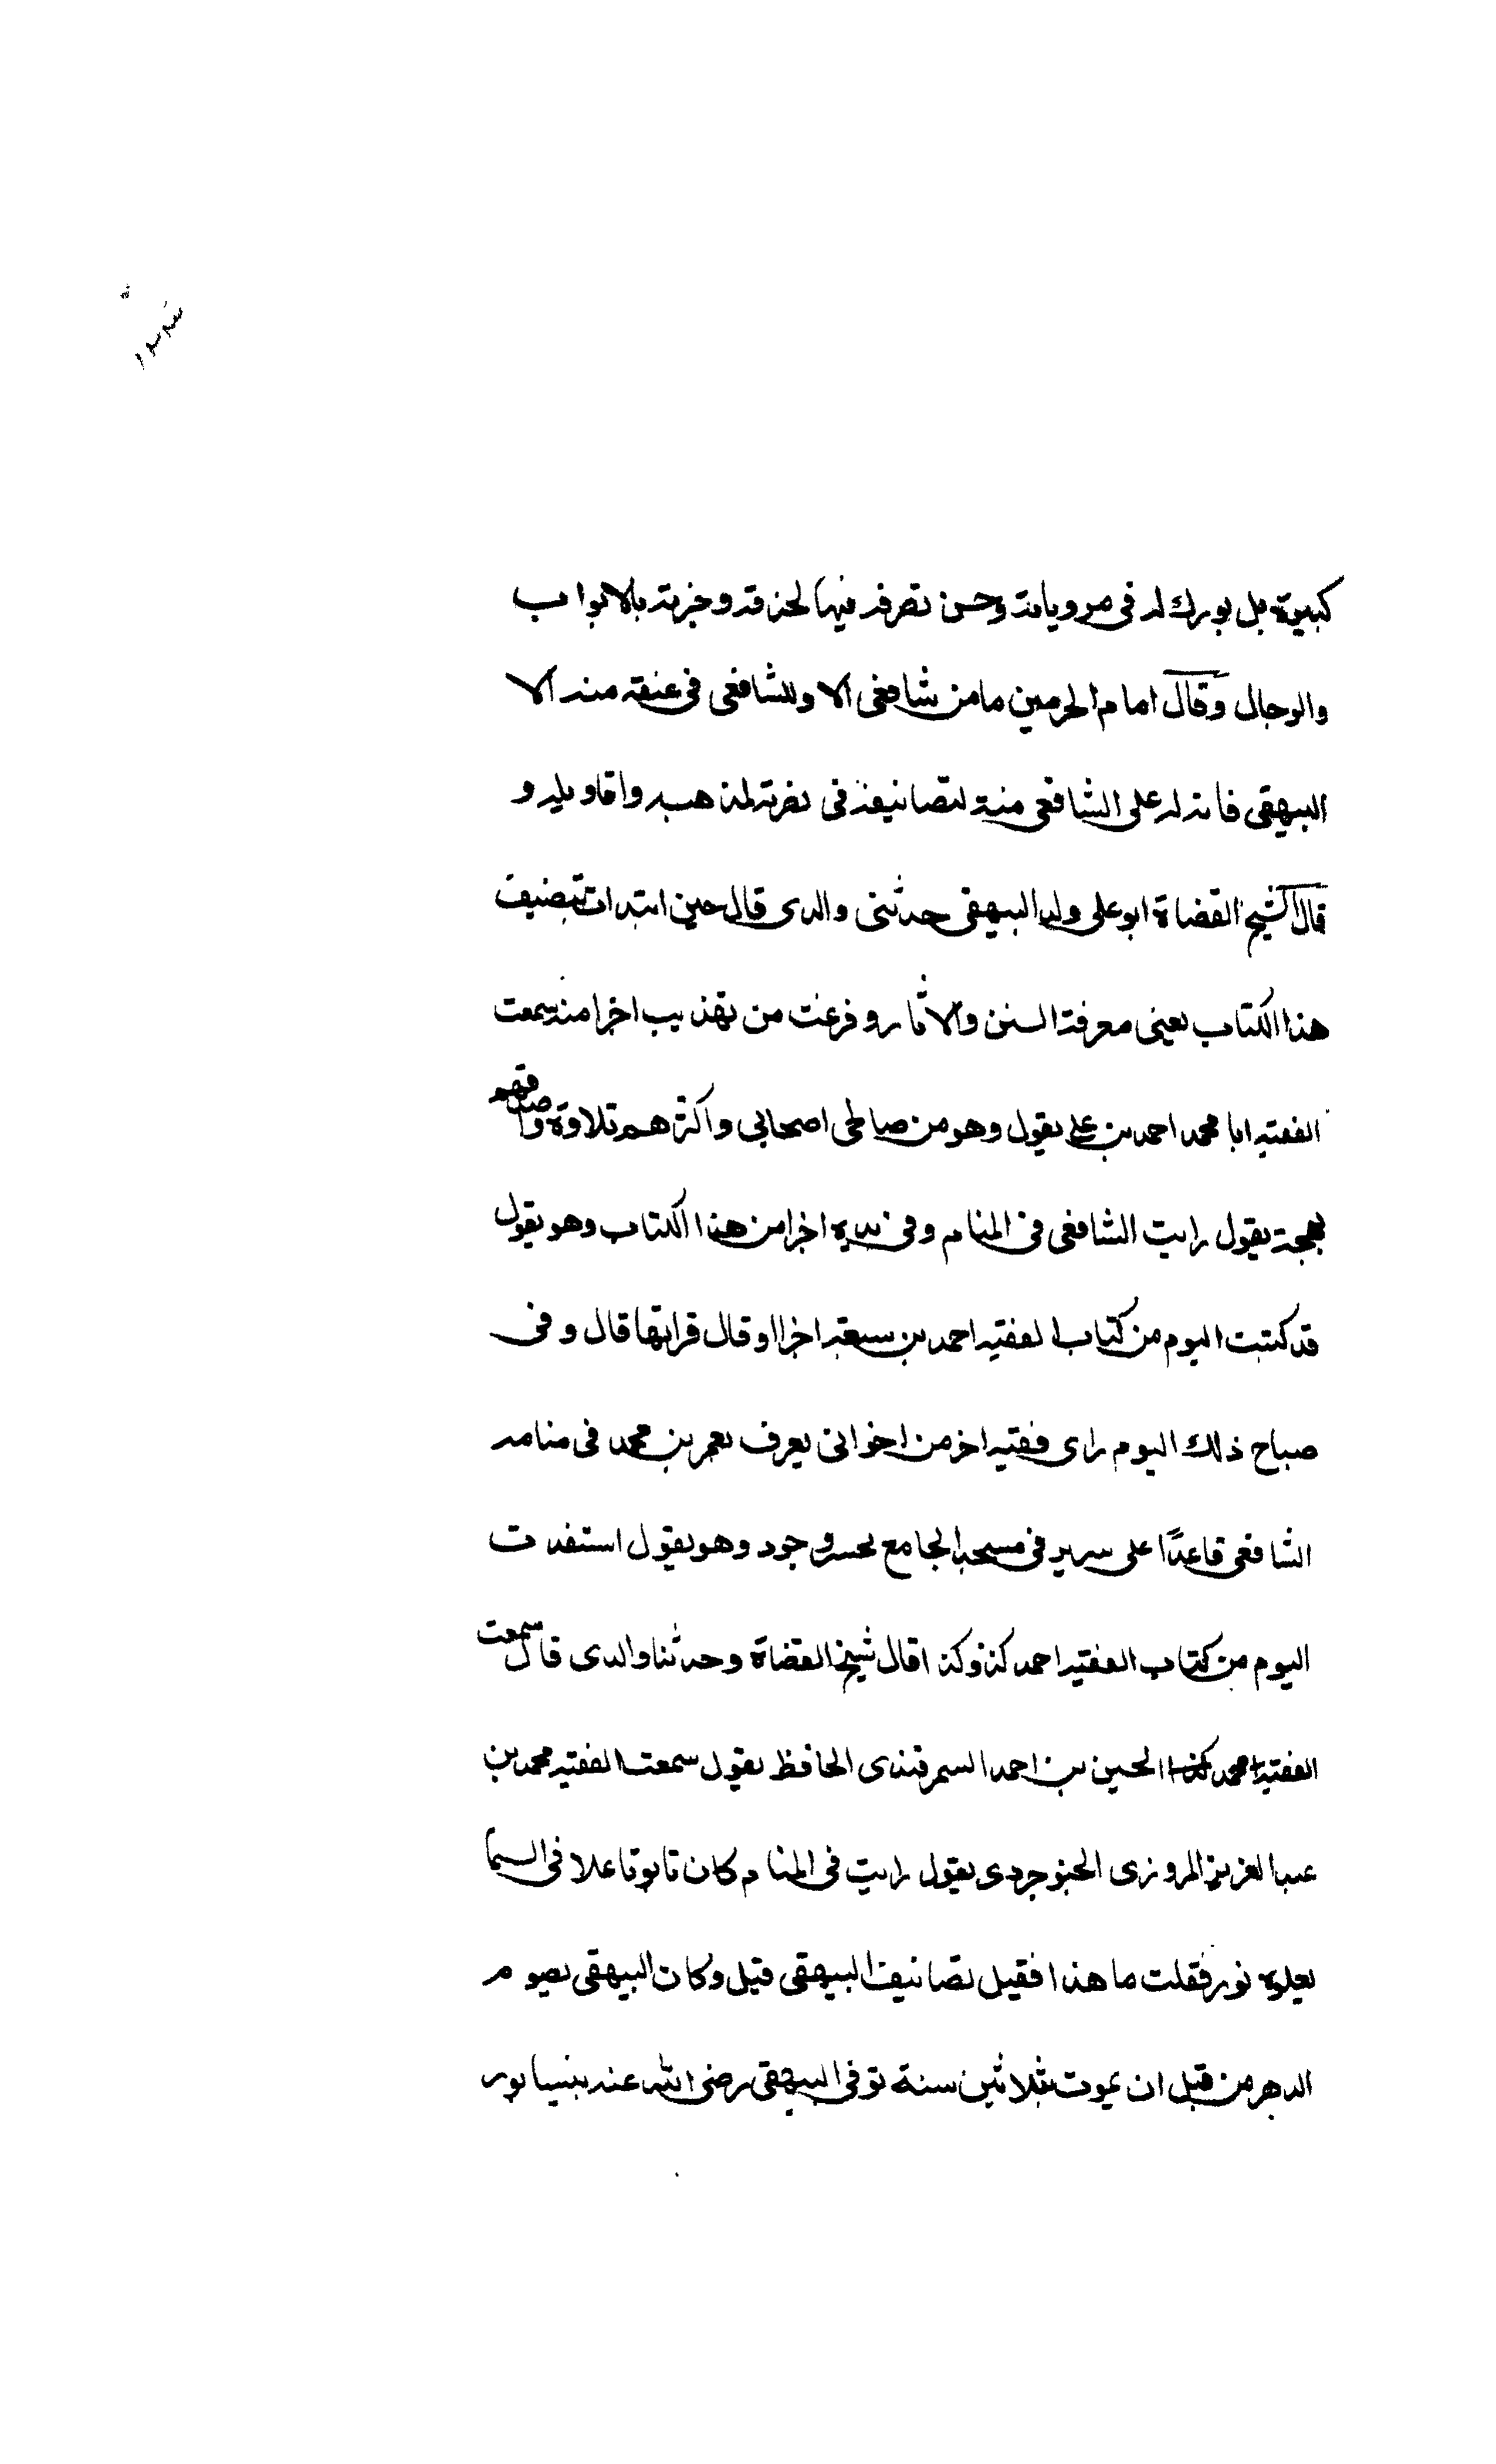 كبيرة بل بورك له في مروياته وحسن تصرفه فيها لحذقه وخبرته بالابواب
والرجال وقال امام الحرمين ما من شافعي الا وللشافعي في عنقه منه الا
البيهقي فانه له على الشافعي منة لتصانيفه في نصرته لمذهبه واقاويله و
قال شيخ القضاة ابو على ولد البيهقي حدثني والدى قال حين ابتدات بتصنيف
هذا الكتاب يعنى معرفة السنن والاثار وفرغت من تهذيب اجزا منه سمعت
الفقيه ابا محمد احمد بن علي يقول وهو من صالحى اصحابي واكثرهم تلاوة واصدقهم
لهجة يقول رايت الشافعى في المنام وفي يديه اجزا من هذا الكتاب وهو يقول
قد كتبت اليوم من كتاب الفقيه احمد بن سبعة اجزا او قال قراتها قال وفى
صباح ذلك اليوم راى فقيه اخر من اخوانى يعرف بعمر بن محمد في منامه
الشافعى قاعدًا على سرير في مسجد الجامع بخسروجرد وهو يقول استفدت
اليوم من كتاب الفقيه احمد كذا وكذا قال شيخ القضاة وحدثنا والدى قال سمعت
الفقيه الحسين بن احمد السمرقندى الحافظ يقول سمعت الفقيه محمد بن
عبد العزيز المروزى الجنوجردى يقول رايت في المنام كان تابوتا علا في السما
يعلوه نور فقلت ما هذا فقيل تصانيف البيهقى قيل وكان البيهقى يصوم
الدهر من قبل ان يموت بثلاثين سنة توفي البيهقى رضى الله عنه بنيسابور